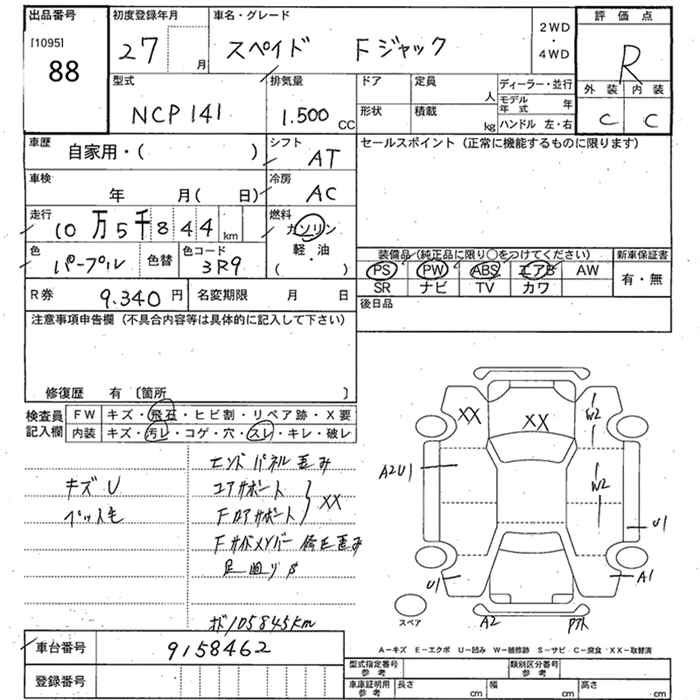 出品番号
[1095]
88
初度登録年月
27 月
車名・グレード
スペイド Fジャック
2WD
・
4WD
評価点
R
外装 内装
C C
型式
NCP141
排気量
1.500 CC
ドア
定員
人
形状
積載
kg
ディーラー・並行
モデル年式 年
ハンドル 左・右
車歴
自家用・( )
シフト
AT
セールスポイント (正常に機能するものに限ります)
車検
年 月( 日)
冷房
AC
走行
10万5千844 km
燃料
ガソリン
軽・油
( )
色
パープル
色替
色コード
3R9
装備品(純正品に限り○をつけてください)
新車保証書
PS PW ABS エアB AW
有・無
SR ナビ TV カワ
R券
9.340 円
名変期限 月 日
後日品
注意事項申告欄(不具合内容等は具体的に記入して下さい)
修復歴 有 〔箇所 〕
検査員記入欄
FW キズ・飛石・ヒビ割・リペア跡・X要
内装 キズ・汚レ・コゲ・穴・スレ・キレ・破レ
キズU
ペット毛
エンドパネル歪み
コアサポート
Fロアサポート
XX
Fサイドメンバー修正歪み
足廻りS
メーター105845km
XX
XX
W2
A2U1
W2
U1
U1
A1
スペア
A2
P/X
A-キズ E-エクボ U-凹み W-補修跡 S-サビ C-腐食 XX-取替済
車台番号
9158462
登録番号
型式指定番号
参考
類別区分番号
参考
車庫証明用
参考
長さ cm
幅 cm
高さ cm